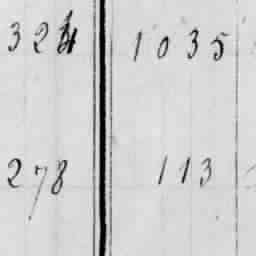 324 1035
278 113